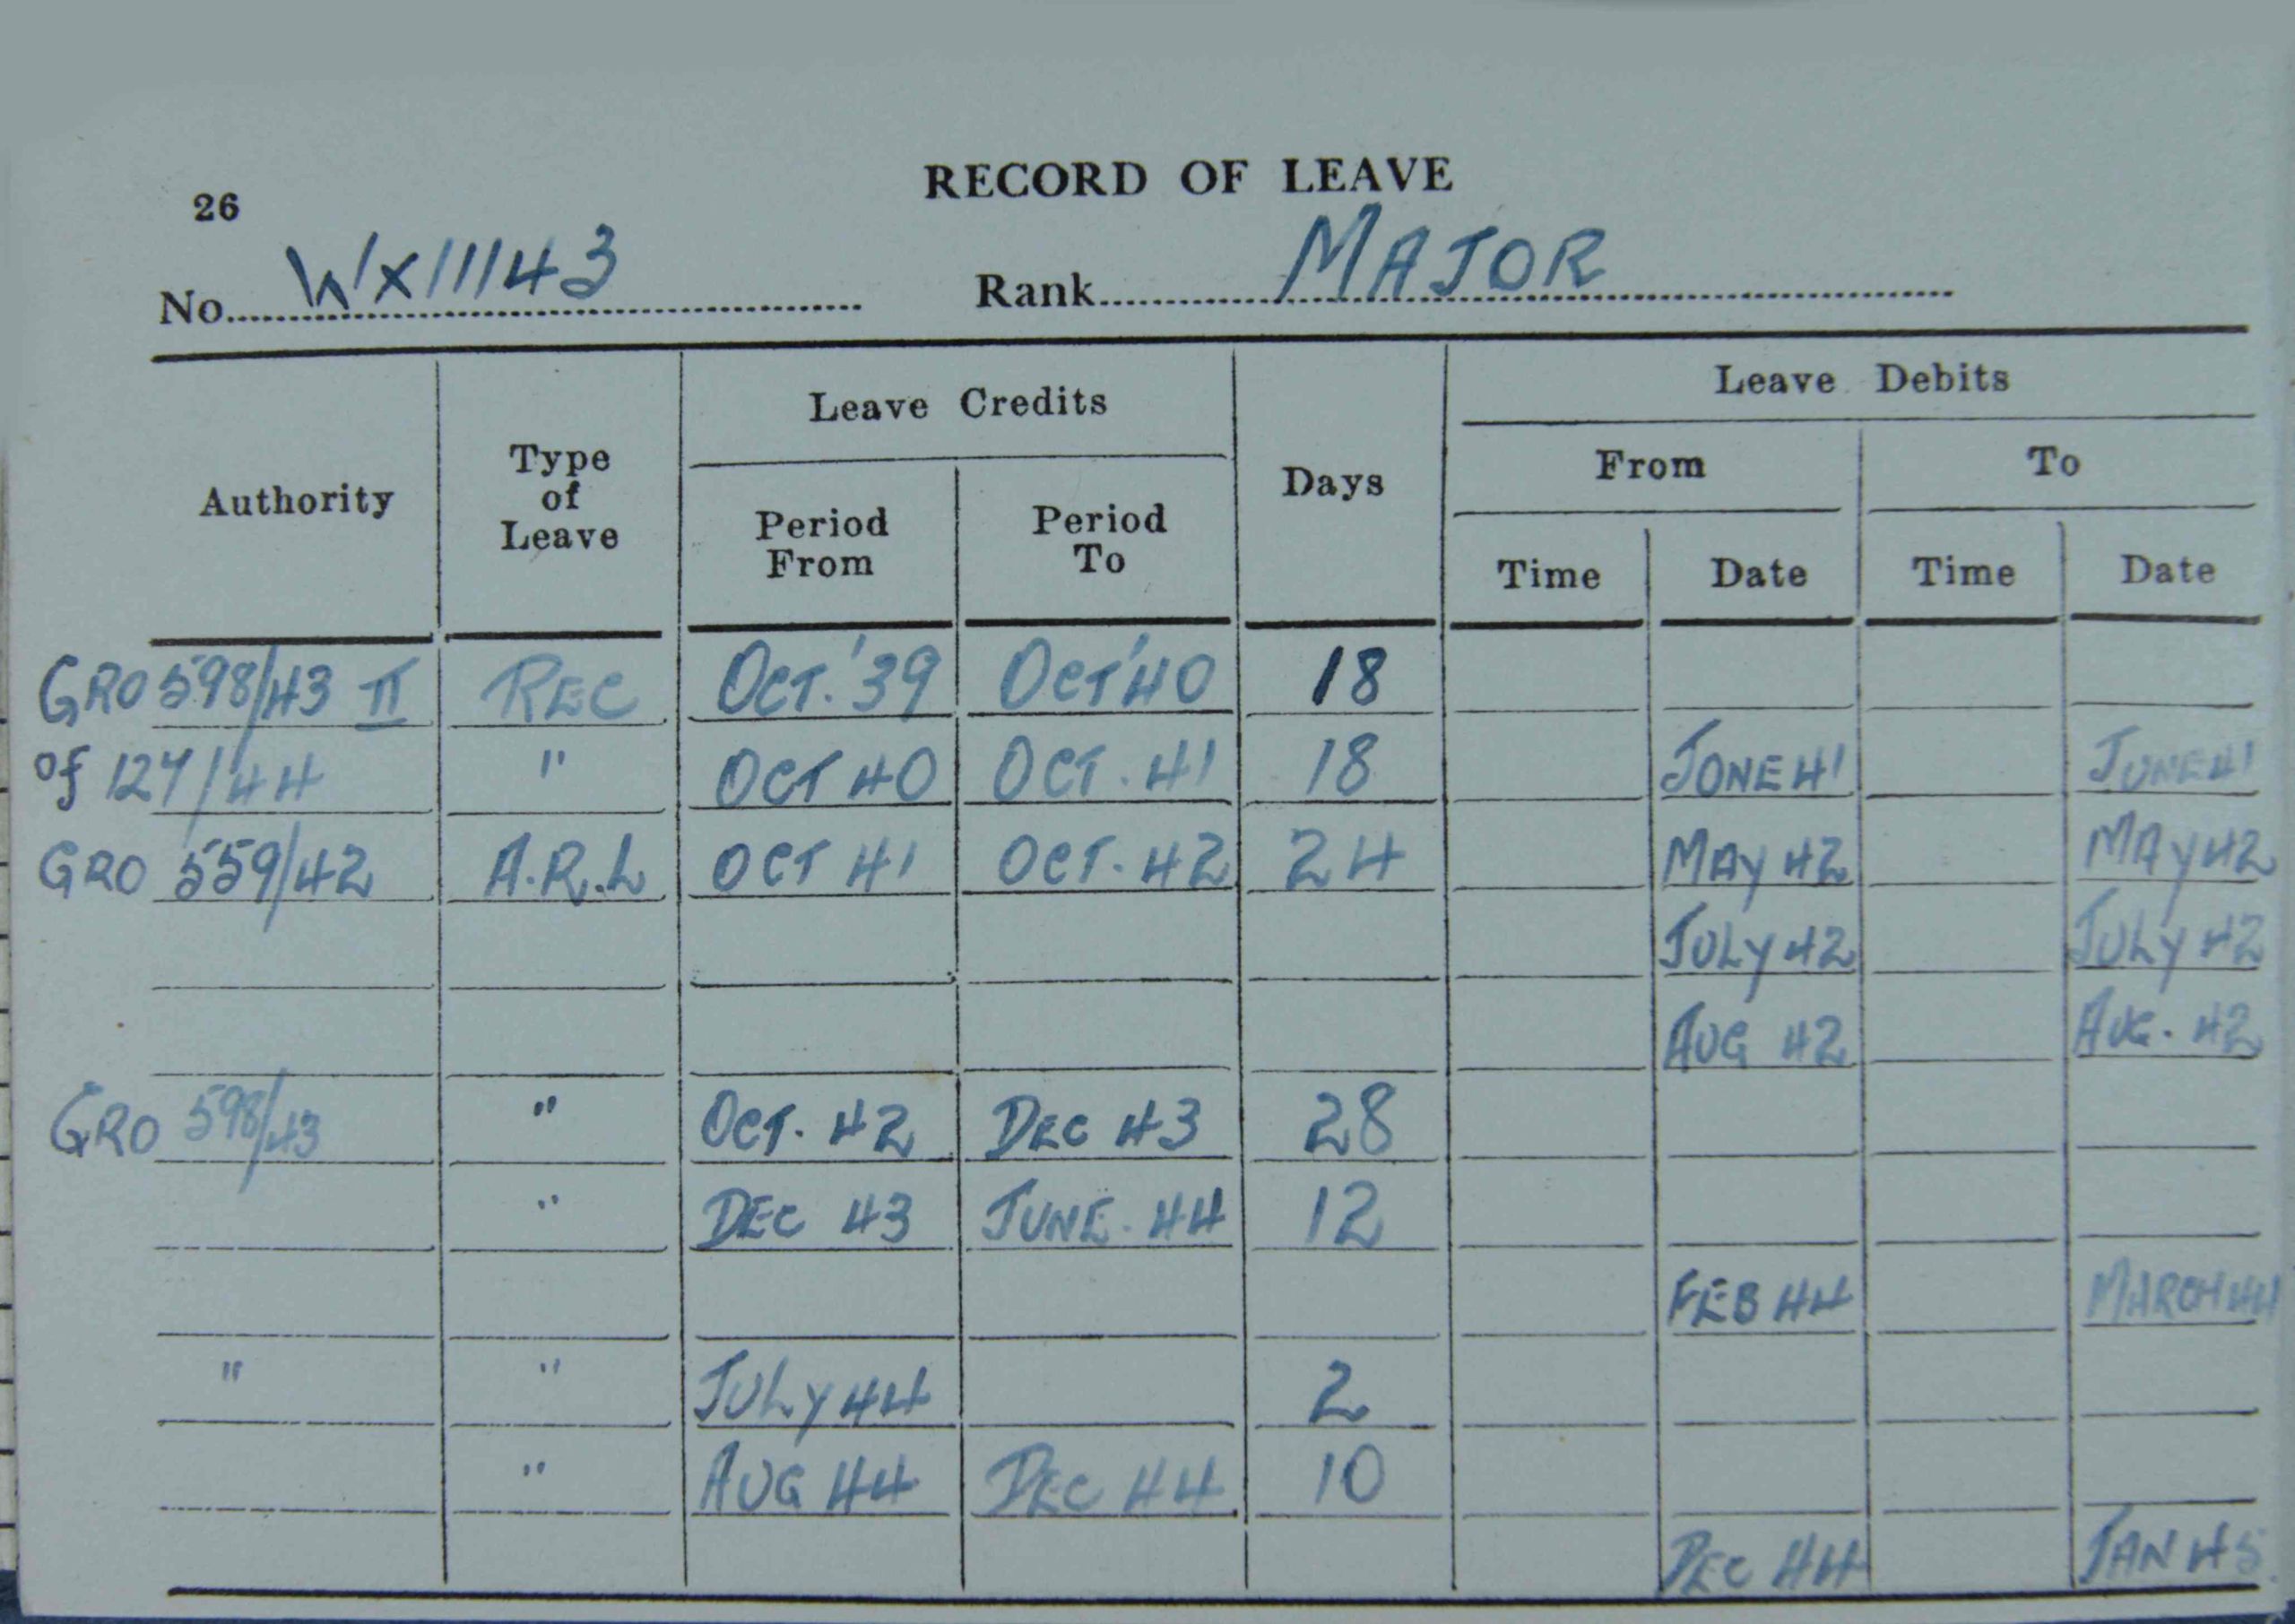 RECORD OF LEAVE
26
No. WX11143 Rank MAJOR
Leave Credits Leave Debits
Authority Type of Leave Period From Period To Days From To
Time Date Time Date
GRO 598/43 II REC OCT. '39 OCT '40 18
of 127/44 " OCT 40 OCT. 41 18 JUNE 41 JUNE 41
GRO 559/42 A.R.L OCT 41 OCT. 42 24 MAY 42 MAY 42
JULY 42 JULY 42
AUG 42 AUG. 42
GRO 598/43 " OCT. 42 DEC 43 28
" DEC 43 JUNE. 44 12
FEB 44 MARCH 44
" " JULY 44 2
" AUG 44 DEC 44 10
DEC 44 JAN 45